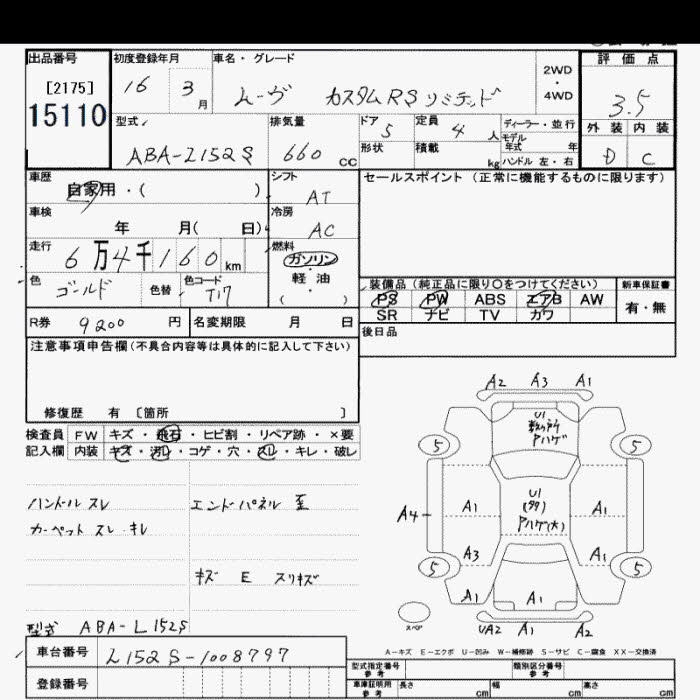 出品番号 初度登録年月 車名・グレード 評価点
[2175] 16 3月 ムーヴ カスタムRSリミテッド 2WD・4WD 3.5
15110
型式 排気量 ドア 5 定員 4人 ディーラー・並行 外装 内装
ABA-L152S 660cc 形状 積載 kg モデル年式 年 ハンドル 左・右 D C
車歴 シフト セールスポイント(正常に機能するものに限ります)
自家用・( ) AT
車検 冷房
年 月( 日) AC
走行 6万4千160km 燃料
ガソリン
色 色替 色コード 軽・油
ゴールド T17 ( )
装備品(純正品に限り○をつけてください) 新車保証書
PS PW ABS エアB AW 有・無
SR ナビ TV カワ
R券 9200円 名変期限 月 日 後日品
注意事項申告欄(不具合内容等は具体的に記入して下さい)
修復歴 有 〔箇所 〕
検査員 FW キズ・飛石・ヒビ割・リペア跡・×要
記入欄 内装 キズ・汚レ・コゲ・穴・スレ・キレ・破レ
ハンドル スレ エンドパネル 歪
カーペット スレ・キレ
キズ E スリキズ
型式 ABA-L152S
車台番号 L152S-1008797
登録番号
A2 A3 A1
U1
Pハゲ
5 5
A1 U1 A1
A4 Pハゲ(大)
A3 A1
5 5
A1 A1
スペア UA2 A1 A2
A-キズ E-エクボ U-凹み W-補修跡 S-サビ C-腐食 XX-交換済
型式指定番号 参考 類別区分番号 参考
車庫証明用 参考 長さ cm 幅 cm 高さ cm